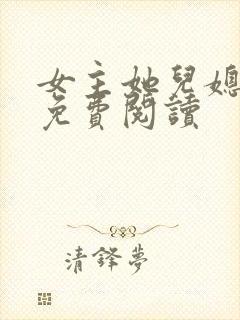 女主她兒媳
免費閱讀
清鋒夢